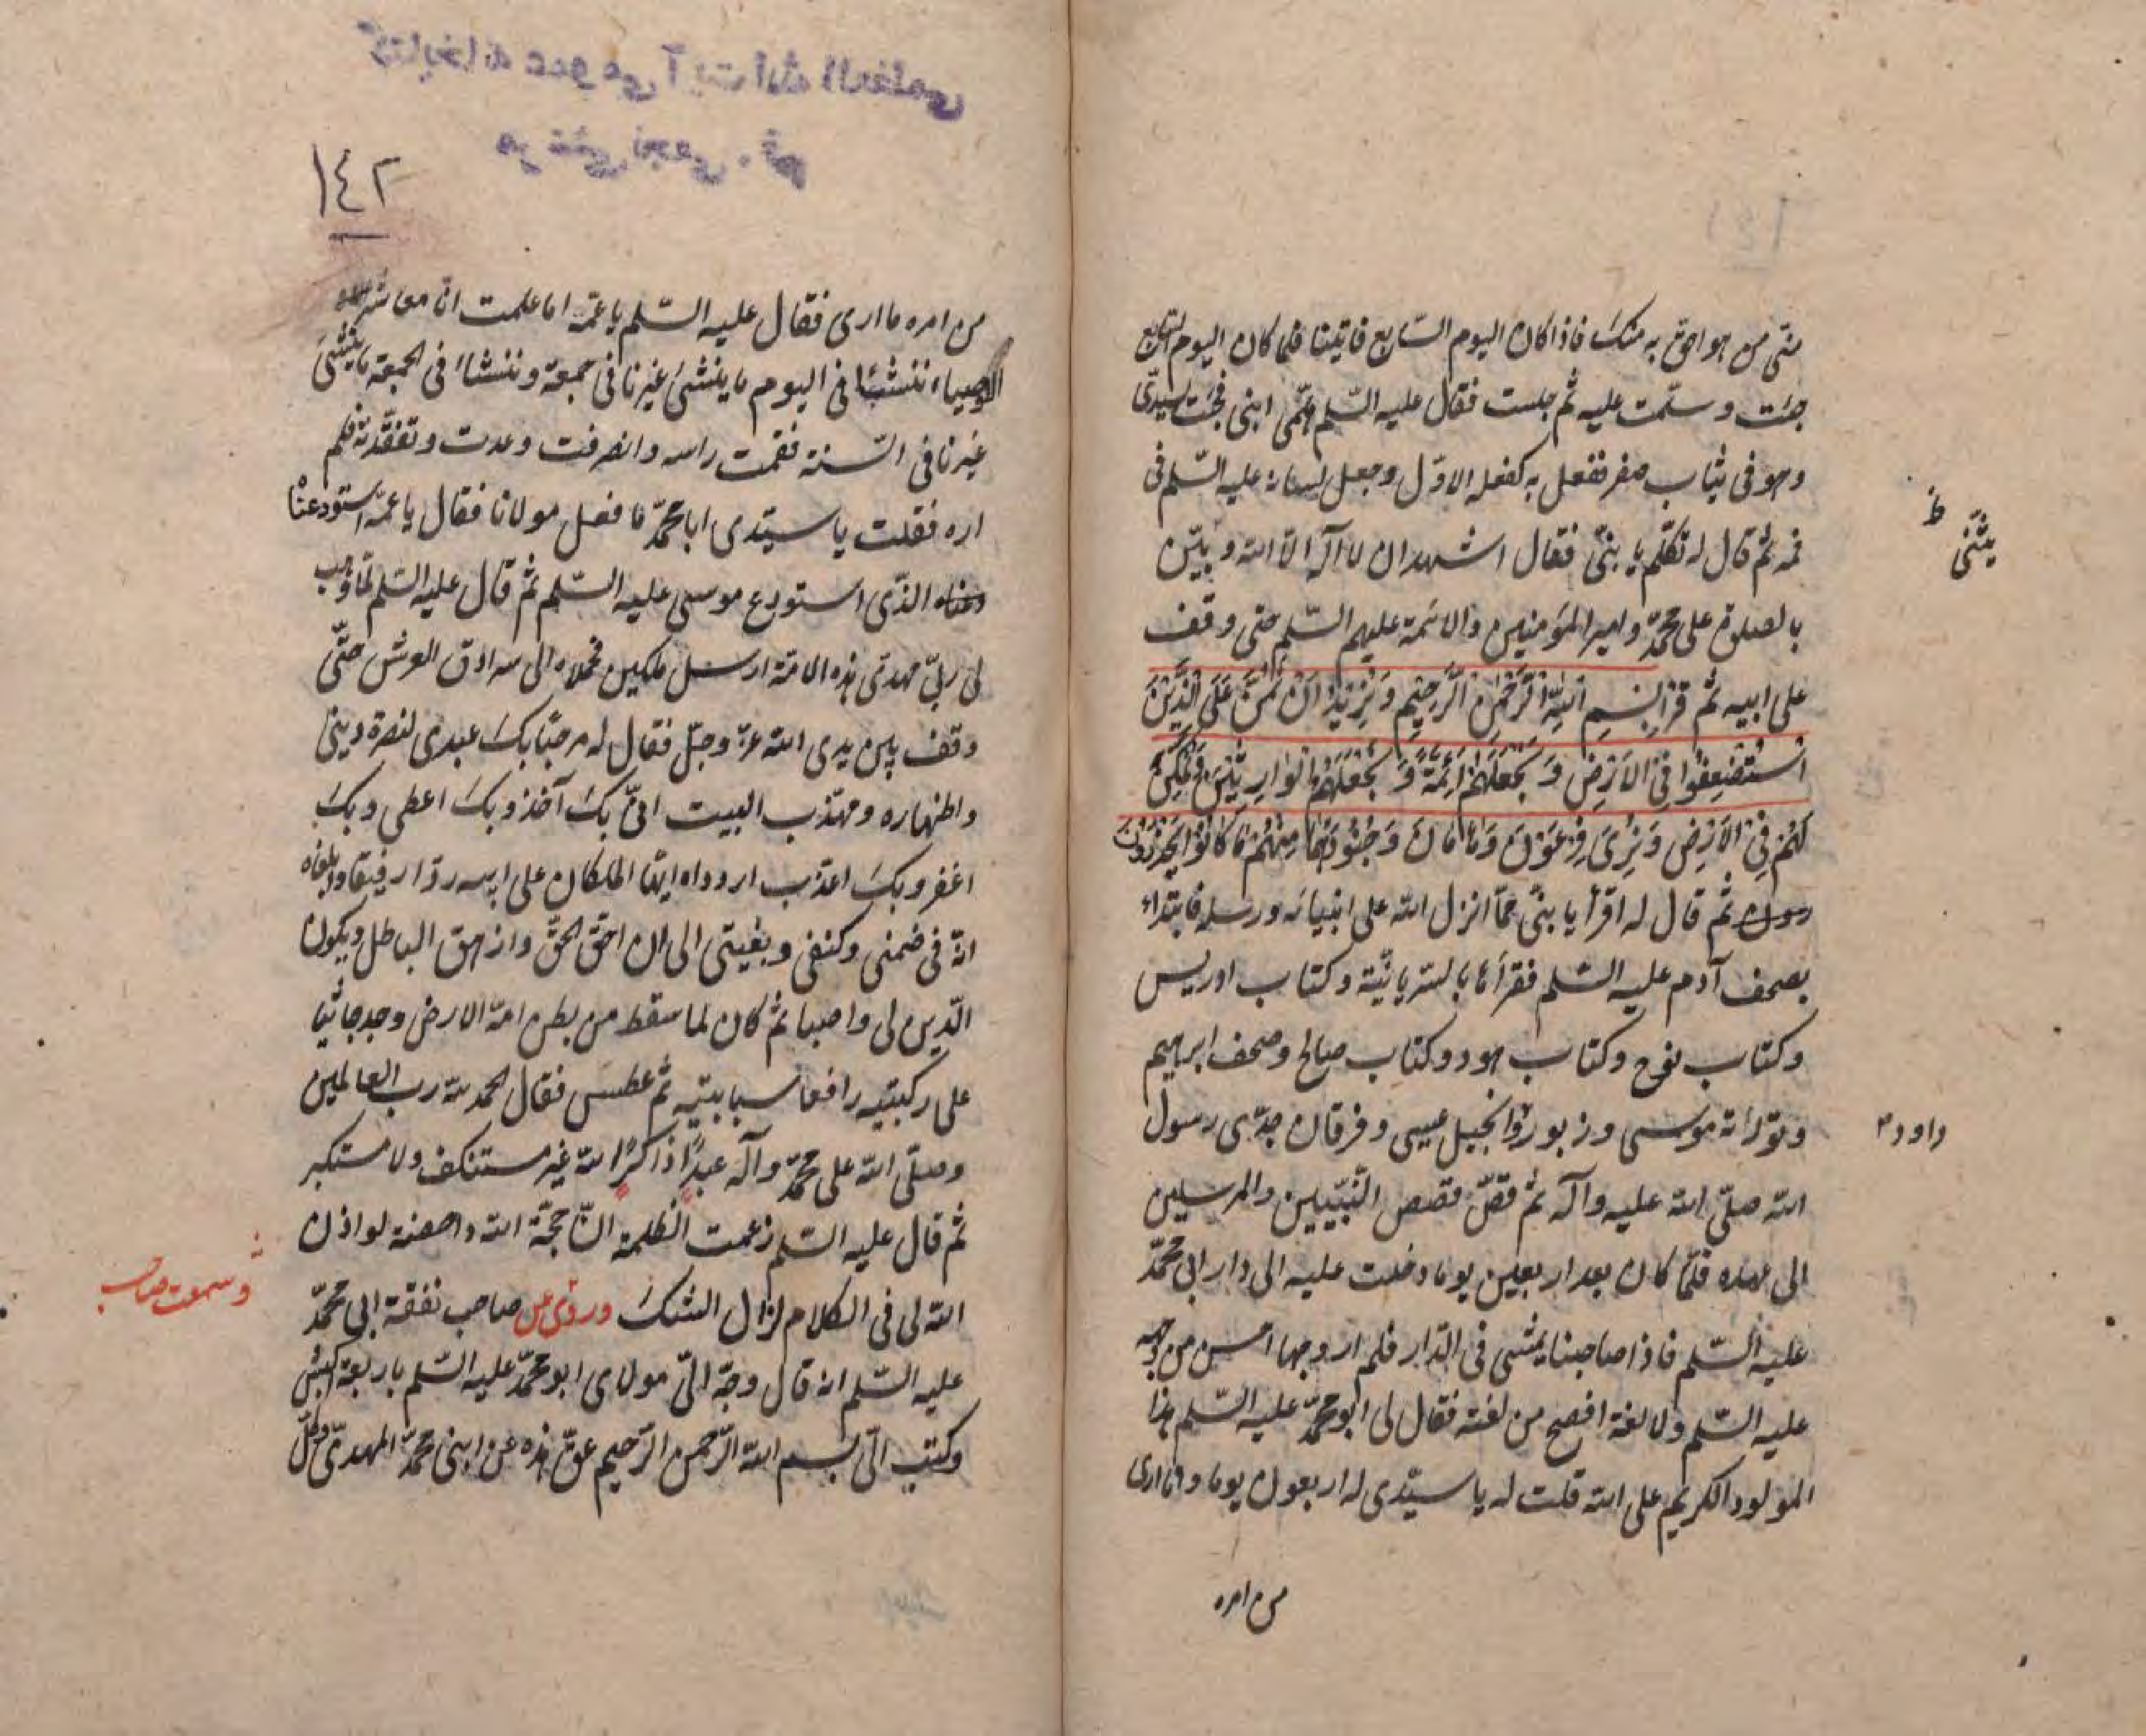 منّى من هو احق به منك فاذا كان اليوم السّابع فاتينا فلما كان اليوم السّابع
جئت و سلّمت عليه ثم جلست فقال عليه السّلم هلمّى ابنى فجئت بسيدى
وهو فى ثياب صفر ففعل به كفعله الاوّل وجعل لسانه عليه السّلم فى
فمه ثم قال له تكلّم يا بنىّ فقال اشهد ان لا اله الا الله و
بالصلوة على محمّد وامير المؤمنين والائمة عليهم السّلم حتى وقف
على ابيه ثم قرأ بِسْمِ اللّهِ الرَّحْمنِ الرَّحِيمِ وَنُرِيدُ اَنْ نَمُنَّ عَلَى الَّذِينَ
اسْتُضْعِفُوا فِى الاَرْضِ وَ نَجْعَلَهُمْ اَئِمَّةً وَ نَجْعَلَهُمُ الْوارِثِينَ وَنُمَكِّنَ
لَهُمْ فِى الاَرْضِ وَ نُرِىَ فِرْعَوْنَ وَهَامَانَ وَ جُنُودَهُمَا مِنْهُمْ مَا كَانُوا يَحْذَرُونَ
ثم قال له اقرأ يا بنىّ ممّا انزل الله على انبيائه ورسله فابتداء
بصحف آدم عليه السّلم فقرأها بالسريانيّة وكتاب ادريس
وكتاب نوح وكتاب هود وكتاب صالح وصحف ابرهيم
وتوراة موسى وزبور وانجيل عيسى وفرقان جدّى رسول
داود
الله صلّى الله عليه وآله ثم قصّ قصص النّبيّين والمرسلين
الى عهده فلمّا كان بعد اربعين يوما دخلت عليه الى دار ابى محمّد
عليه السّلم فاذا صاحبنا يمشى فى الدّار فلم ار وجها احسن من وجهه
عليه السّلم ولا لغة افصح من لغته فقال لى ابو محمّد عليه السّلم هذا
المولود الكريم على الله قلت له يا سيّدى له اربعون يوما وانا ارى
من امره
١٤٢
من امره ما ارى فقال عليه السّلم يا عمّة اما علمت انا معاشر
الاوصياء ننشئا فى اليوم ما ينشئ غيرنا فى جمعة وننشئا فى الجمعة ما ينشئ
غيرنا فى السّنة فقمت راسه وانصرفت وعدت وتفقّدته فلم
اره فقلت يا سيّدى ابا محمّد ما فعل مولانا فقال يا عمّة استودعناه
الذّى استودع موسى عليه السّلم ثم قال عليه السّلم لمّا وهب
لى ربّى مهدىّ هذه الامّة ارسل ملكين فحملاه الى سرادق العرش حتّى
وقف بين يدى الله عزّ وجلّ فقال له مرحبًا بك عبدى لنصرة دينى
واظهاره ومهذب البيت انىّ بك آخذ وبك اعطى وبك
اغفر وبك اعذّب اردداه ايّها الملكان على ابيه ردّا رفيقا وابلغاه
انّه فى ضمنى وكنفى و الى ان احقّ الحقّ وازهق الباطل ويكون
الدّين لى واصبا ثم كان لما سقط من بطن امّه الارض وجد جاثيا
على ركبتيه رافعا سبابتيه ثم عطس فقال الحمد لله رب العالمين
وصلّى الله على محمّد وآله عبدًا ذاكرًا لله غير مستنكف ولا مستكبر
ثم قال عليه السّلم زعمت الظلمة انّ حجّة الله داحضة لو اذن
الله لى فى الكلام لزال الشك وروى عن صاحب نفقة ابى محمّد
وسمعت صاحب
عليه السّلم انه قال وجّه الىّ مولاى ابو محمّد عليه السّلم باربعة اكبش
وكتب الىّ بسم الله الرّحمن الرّحيم عقّ هذه عن ابنى محمّد المهدىّ وكل